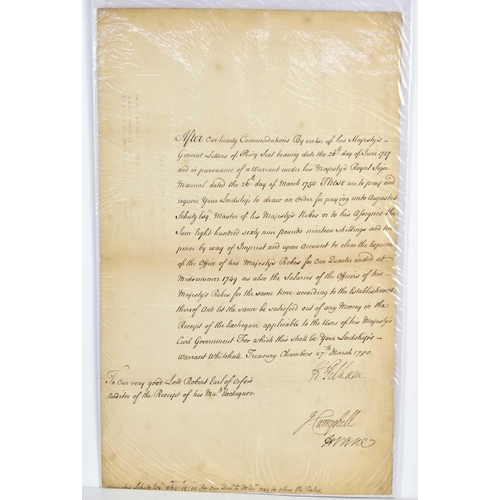 After Our hearty Commendations By virtue of his Majesty's
General Letters of Privy Seal bearing date the 26th day of June 1727
and in pursuance of a Warrant under his Majesty's Royal Sign
Manual dated the 26th day of March 1750 These are to pray and
require Your Lordship to draw an Order for paying unto Augustus
Schutz Esqr Master of his Majesty's Robes or to his Assignes the
Sum Eight hundred sixty nine pounds nineteen shillings and ten
pence by way of Imprest and upon Account to clear the Expences
of the Office of his Majesty's Robes for One Quarter ended at
Midsummer 1749 as also the Salaries of the Officers of his
Majesty's Robes for the same time according to the Establishment
thereof And let the same be satisfied out of any Money in the
Receipt of the Exchequer applicable to the Uses of his Majesty's
Civil Government For which this shall be Your Lordship's
Warrant Whitehall Treasury Chambers 27th March 1750
H Pelham
To Our very good Lord Robert Earl of Orford
Auditor of the Receipt of his Mats Exchequer
J Campbell
Schutz Esqr 869 19 10 for One Quart to Midsr 1749 to clear the Robes